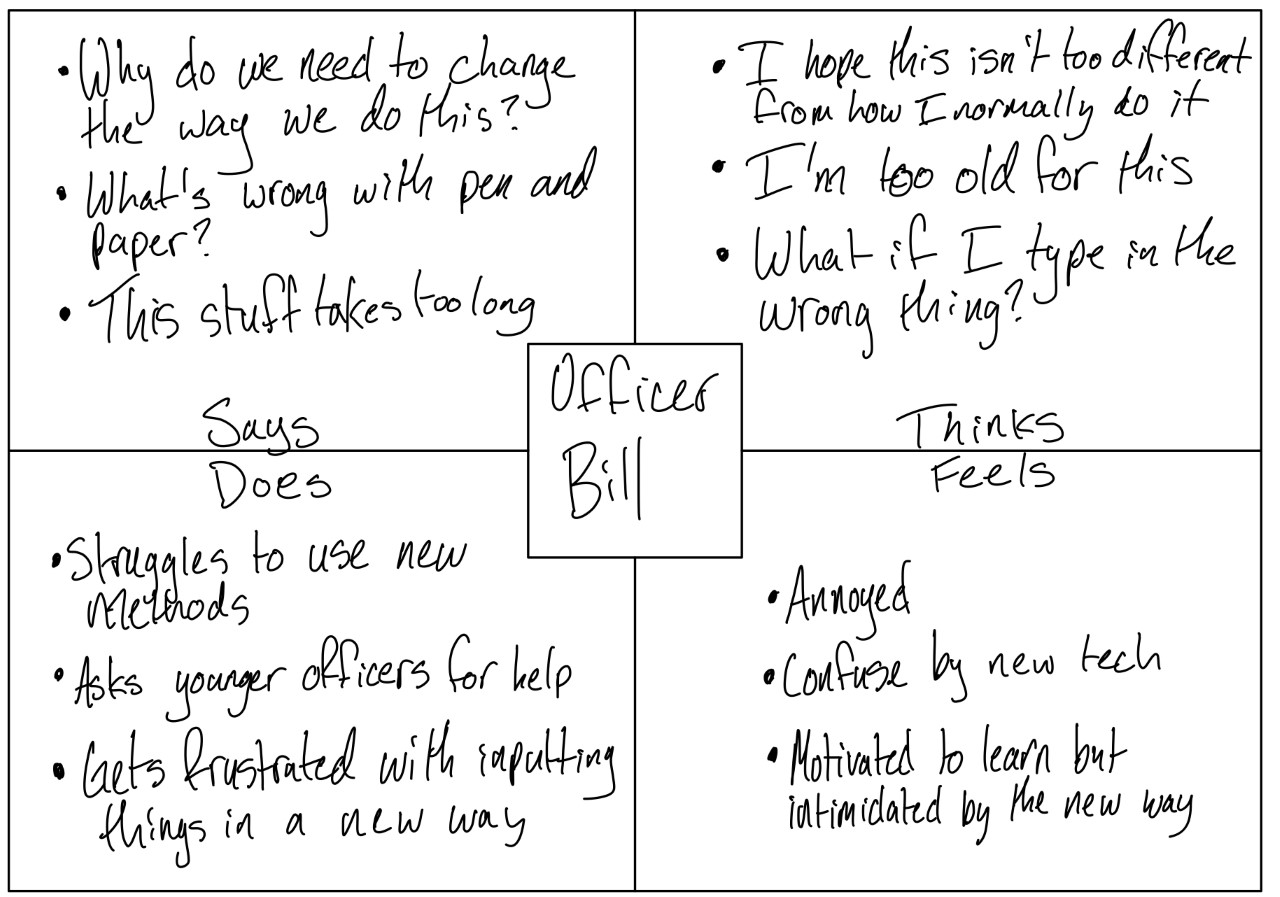 • Why do we need to change
the way we do this?
• What's wrong with pen and
paper?
• This stuff takes too long
Says
• I hope this isn't too different
from how I normally do it
• I'm too old for this
• What if I type in the
wrong thing?
Thinks
Officer
Bill
Does
• Struggles to use new
methods
• Asks younger officers for help
• Gets frustrated with inputting
things in a new way
Feels
• Annoyed
• Confuse by new tech
• Motivated to learn but
intimidated by the new way